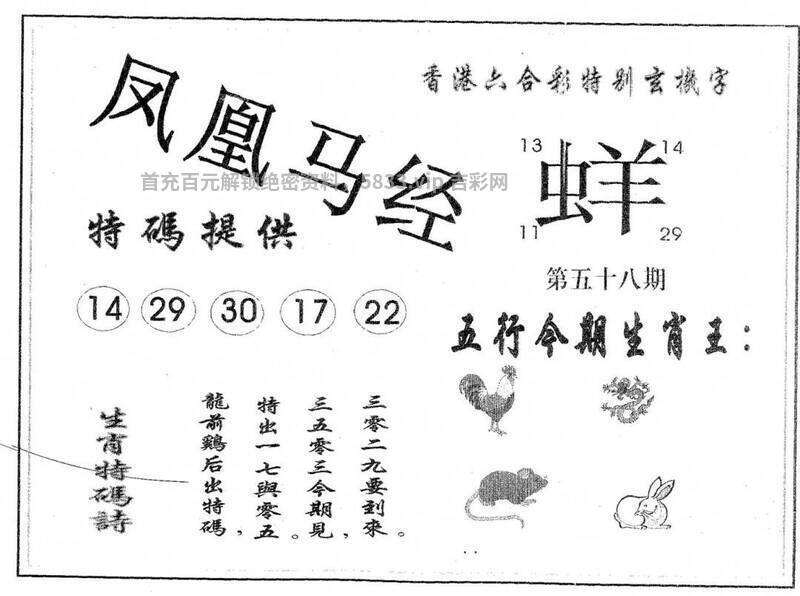 凤凰马经
香港六合彩特别玄機字
13
14
蛘
11
29
首充百元解锁绝密资料，5833.vip 吉彩网
特碼提供
第五十八期
14 29 30 17 22
五行今期生肖王：
三零二九要到來。
三五零三今期見，
特出一七與零五。
龍前鷄后出特碼，
生肖特碼詩